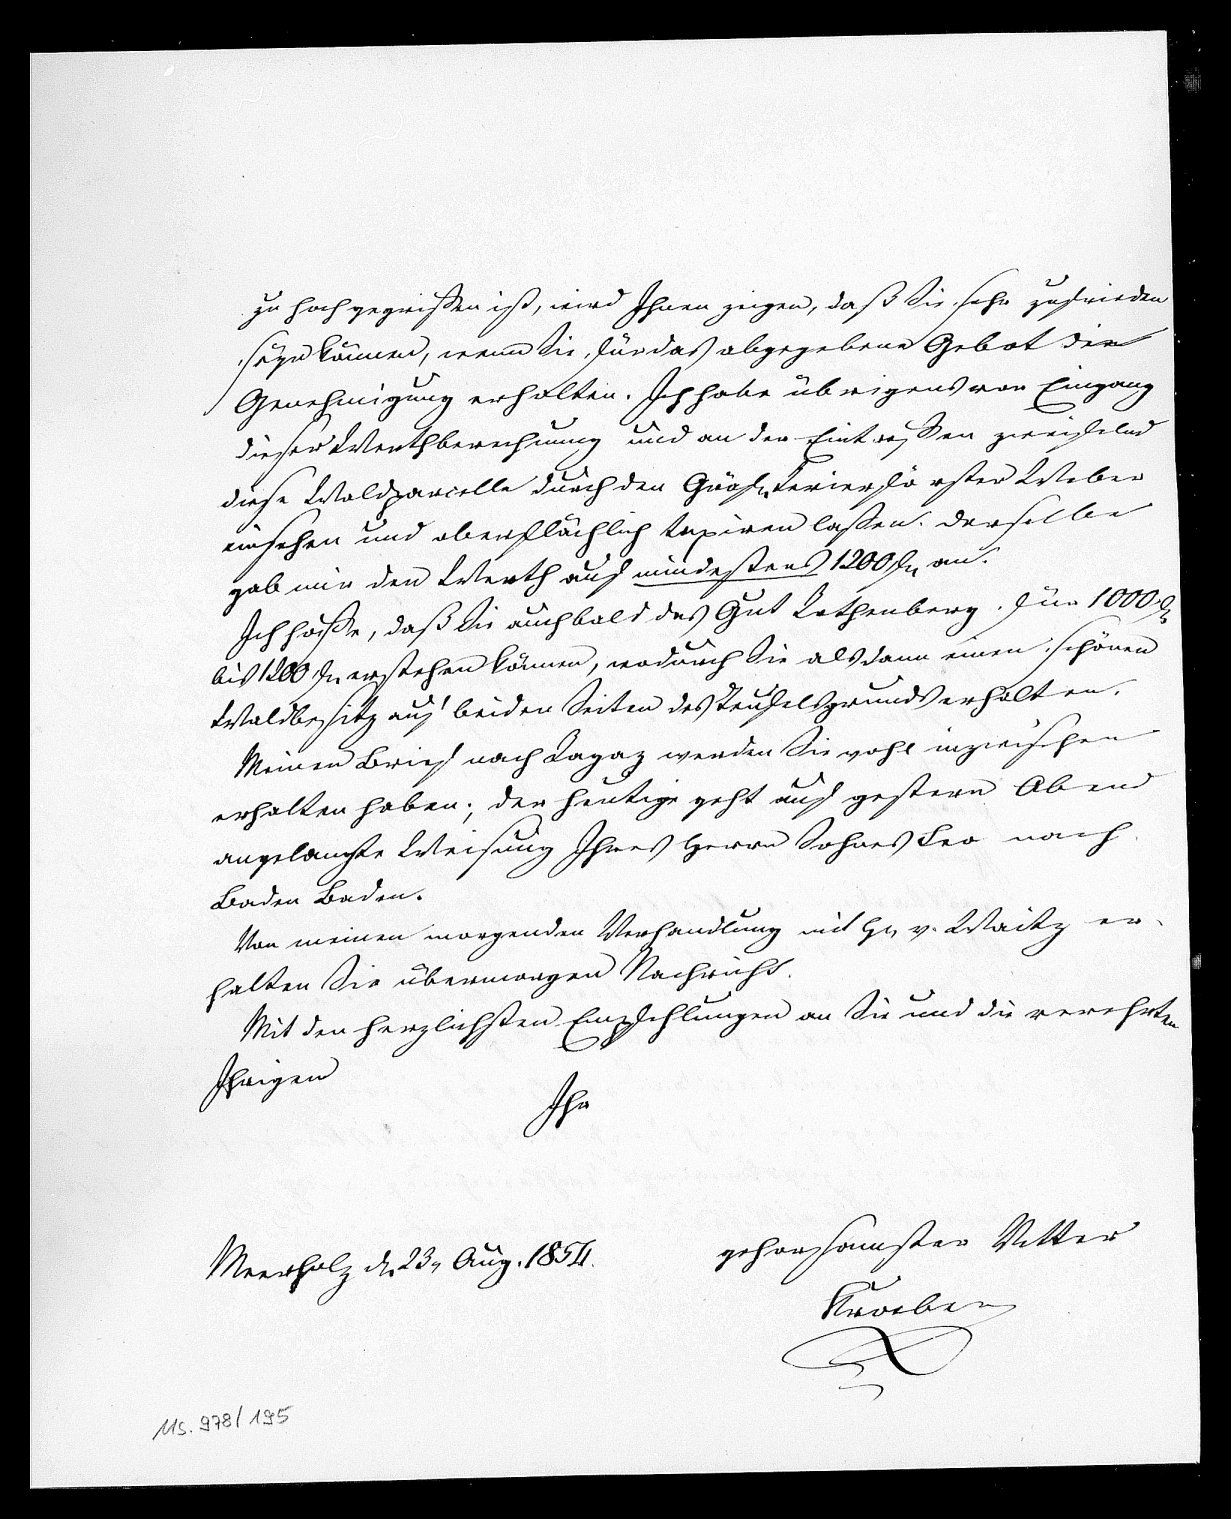 zu hoch gegriffen ist, wird Ihnen zeigen, daß Sie sehr zufrieden
seyn können, wenn Sie für das abgegebene Gebot die
Genehmigung erhalten. Ich habe übrigens vor Eingang
dieser Werthberechnung und an der Eintreffen zweifelnd
diese Waldparcelle durch den Gräfl. Revierförster Weber
einsehen und oberflächlich taxiren lassen. derselbe
gab mir den Werth auf mindestens 1200 fl. an.
Ich hoffe, daß Sie auch bald das Gut Rothenberg für 1000 fl.
bis 1200 fl. erstehen können, wodurch Sie alsdann einen schönen
Waldbesitz auf beiden Seiten des Teufelsgrunds erhalten.
Meinen Brief nach Ragaz werden Sie wohl inzwischen
erhalten haben; der heutige geht auf gestern Abend
angelangte Weisung Ihres Herrn Sohnes Leo nach
Baden Baden.
Von meinen morgenden Verhandlung mit H. v. Waitz er-
halten Sie übermorgen Nachricht.
Mit den herzlichsten Empfehlungen an Sie und die verehrten
Ihrigen
Ihr
gehorsamster Vetter
Meerholz d. 23. Aug. 1854.
Kroeber
Ms. 978/195